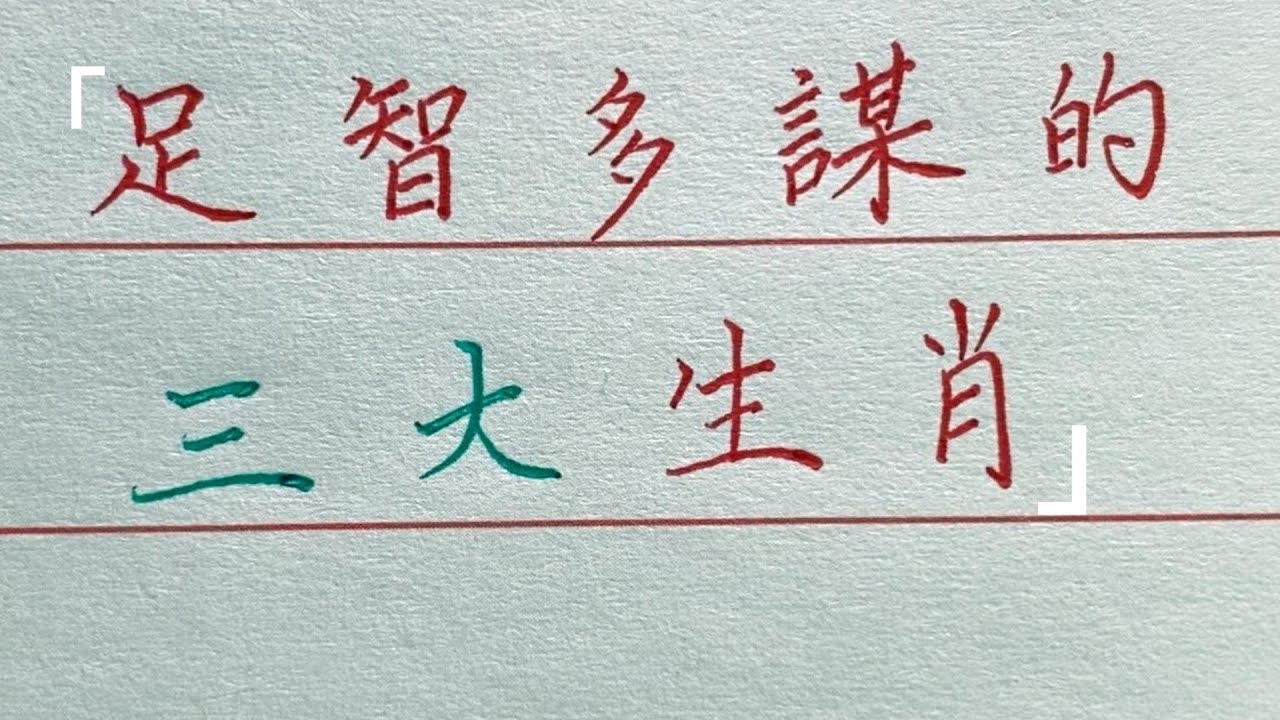 「足智多謀的
三大生肖」